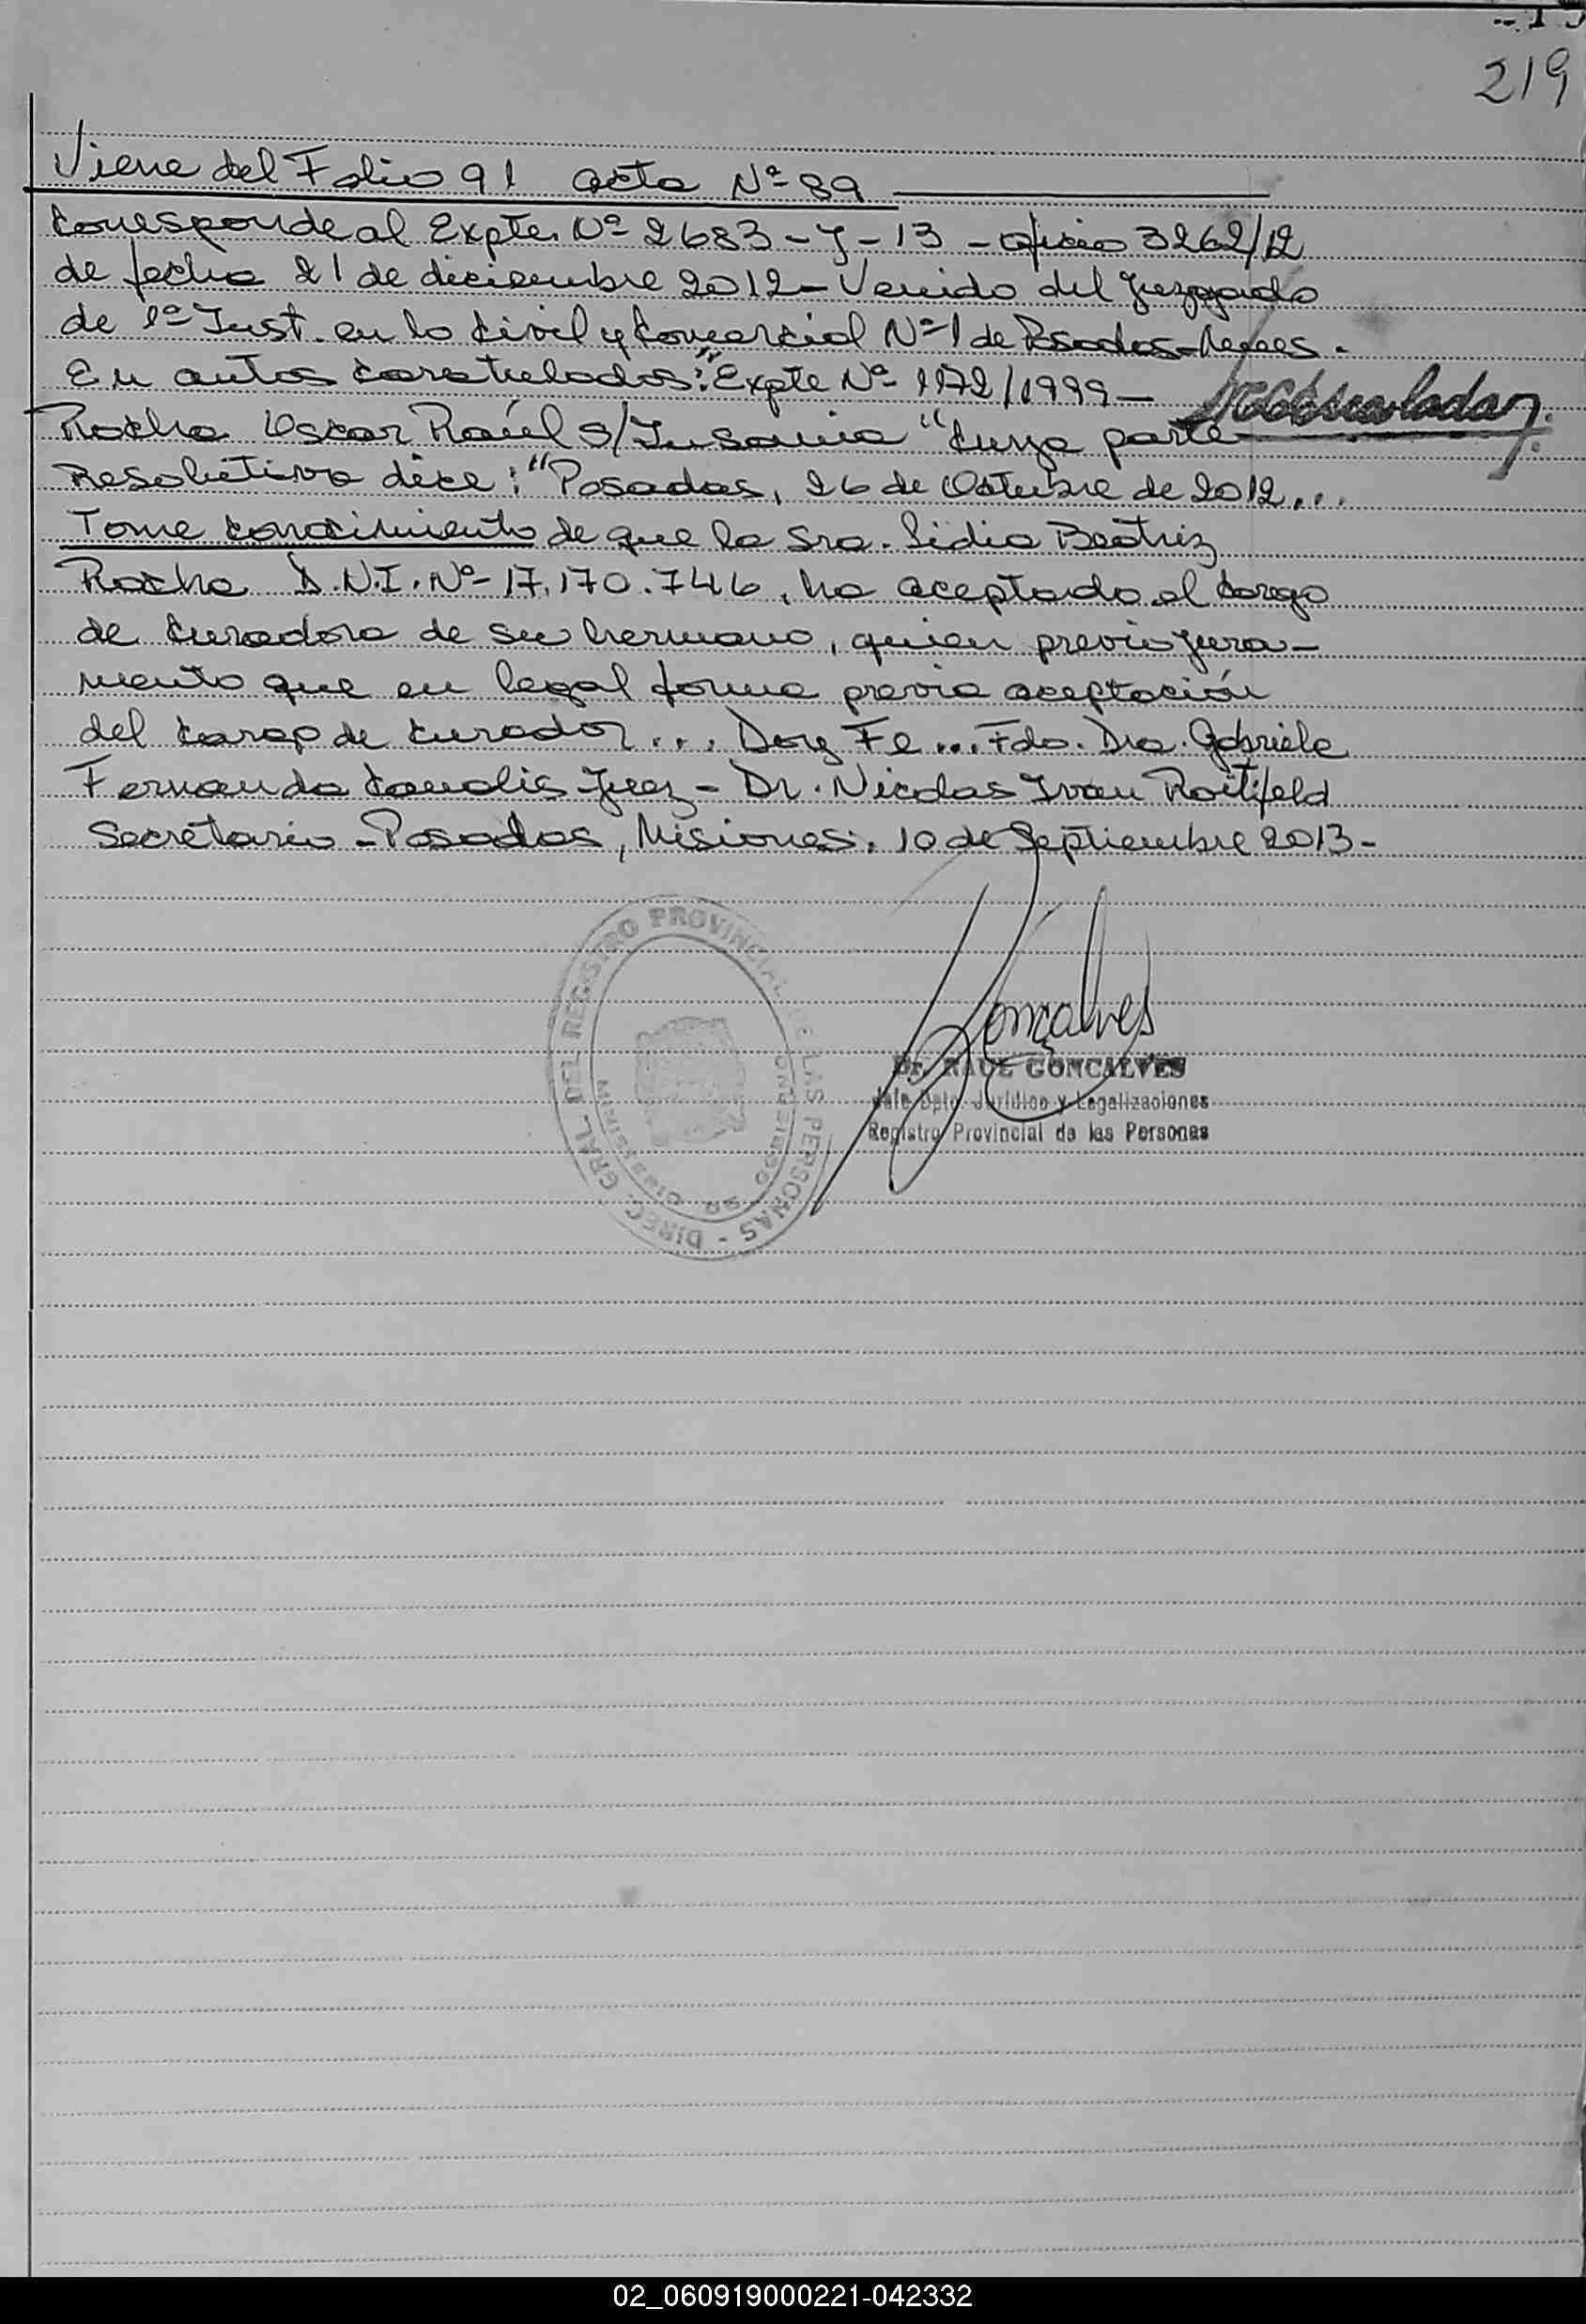 219
Viene del Folio 91 acta Nº 89
Corresponde al Expte. Nº 2683-J-13 - oficio 3262/12
de fecha 21 de diciembre 2012 - Venido del Juzgado
de 1ª Inst. en lo Civil y Comercial Nº 1 de Posadas - Mnes.
En autos caratulados: "Expte Nº 1172/1999 -
Rocha Oscar Raúl s/ Insania" Cuya parte
Resolutiva dice: "Posadas, 26 de Octubre de 2012...
Tome conocimiento de que la Sra. Lidia Beatriz
Rocha D.N.I. Nº 17.170.746, ha aceptado el cargo
de Curadora de su hermano, quien previo jura-
mento que en legal forma previa aceptación
del cargo de curador... Doy Fe... Fdo. Dra. Gabriela
Fernanda Canalis Juez - Dr. Nicolas Ivan Roitfeld
Secretario - Posadas, Misiones. 10 de Septiembre 2013 -
DIREC. GRAL. DEL REGISTRO PROVINCIAL DE LAS PERSONAS -
MINISTERIO DE GOBIERNO
Gonçalves
Dr. RAUL GONCALVES
Jefe Dpto. Jurídico y Legalizaciones
Registro Provincial de las Personas
02_060919000221-042332